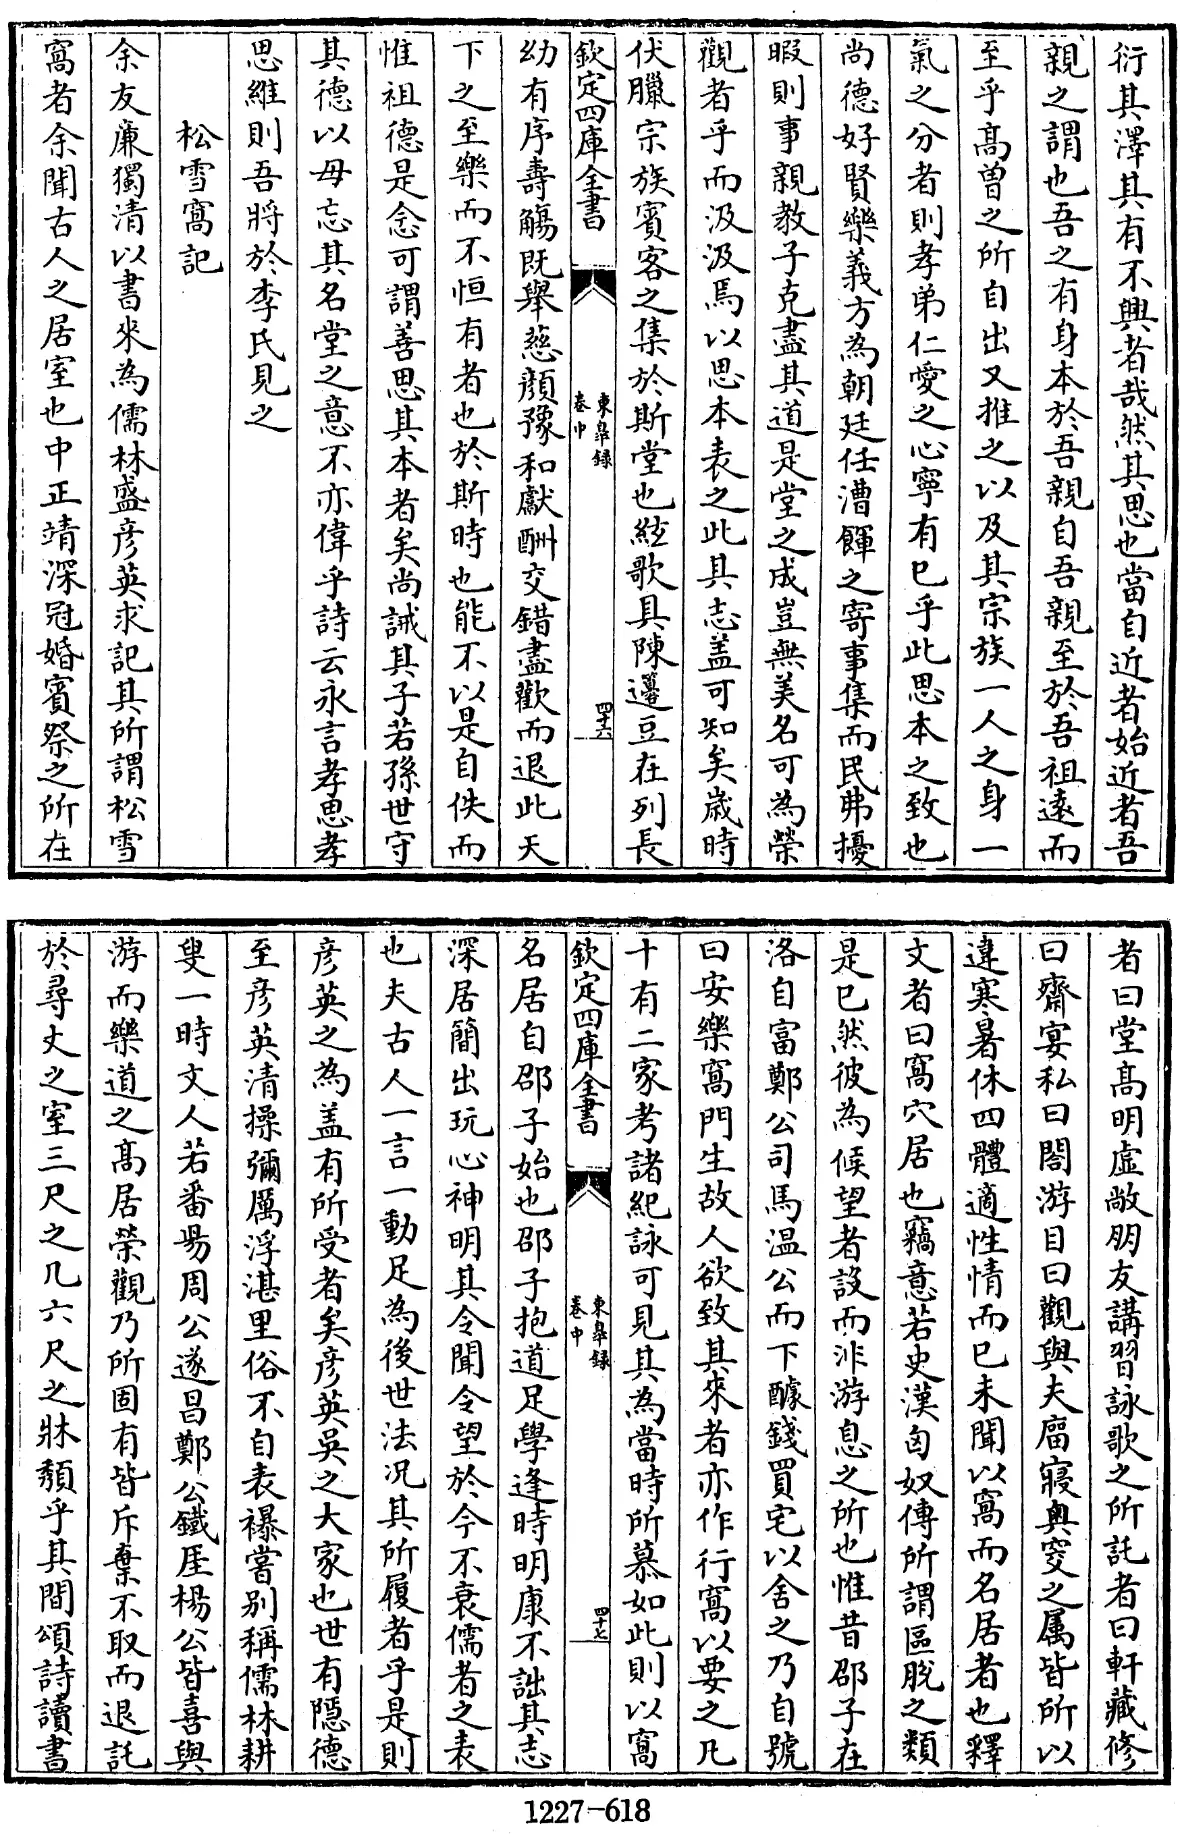 衍其澤其有不興者哉然其思也當自近者始近者吾
親之謂也吾之有身本於吾親自吾親至於吾祖遠而
至乎髙曽之所自出又推之以及其宗族一人之身一
氣之分者則孝弟仁愛之心寧有已乎此思本之致也
尚德好賢樂義方為朝廷任漕餫之寄事集而民弗擾
暇則事親教子克盡其道是堂之成豈無美名可為榮
觀者乎而汲汲焉以思本表之此其志盖可知矣歳時
伏臘宗族賓客之集於斯堂也絃歌具陳籩豆在列長
欽定四庫全書
東臯録
卷中
四十六
幼有序壽觴既舉慈顔豫和獻酬交錯盡歡而退此天
下之至樂而不恒有者也於斯時也能不以是自佚而
惟祖德是念可謂善思其本者矣尚誡其子若孫世守
其德以毋忘其名堂之意不亦偉乎詩云永言孝思孝
思維則吾將於李氏見之
松雪窩記
余友廉獨清以書來為儒林盛彦英求記其所謂松雪
窩者余聞古人之居室也中正靖深冠婚賓祭之所在
者曰堂髙明虛敞朋友講習詠歌之所託者曰軒藏修
曰齋宴私曰閤游目曰觀與夫廇寢奥窔之属皆所以
違寒暑休四體適性情而已未聞以窩而名居者也釋
文者曰窩穴居也竊意若史漢匈奴傳所謂區脫之類
是已然彼為候望者設而非游息之所也惟昔邵子在
洛自富鄭公司馬温公而下醵錢買宅以舍之乃自號
曰安樂窩門生故人欲致其來者亦作行窩以要之凡
十有二家考諸紀詠可見其為當時所慕如此則以窩
欽定四庫全書
東臯録
卷中
四十七
名居自邵子始也邵子抱道足學逢時明康不詘其志
深居簡出玩心神明其令聞令望於今不衰儒者之表
也夫古人一言一動足為後世法况其所履者乎是則
彦英之為盖有所受者矣彦英吳之大家也世有隱德
至彦英清操彌厲浮湛里俗不自表襮嘗别稱儒林耕
叟一時文人若番昜周公遂昌鄭公鐵厓楊公皆喜與
游而樂道之髙居榮觀乃所固有皆斥棄不取而退託
於尋丈之室三尺之几六尺之牀頽乎其間頌詩讀書
1227-618